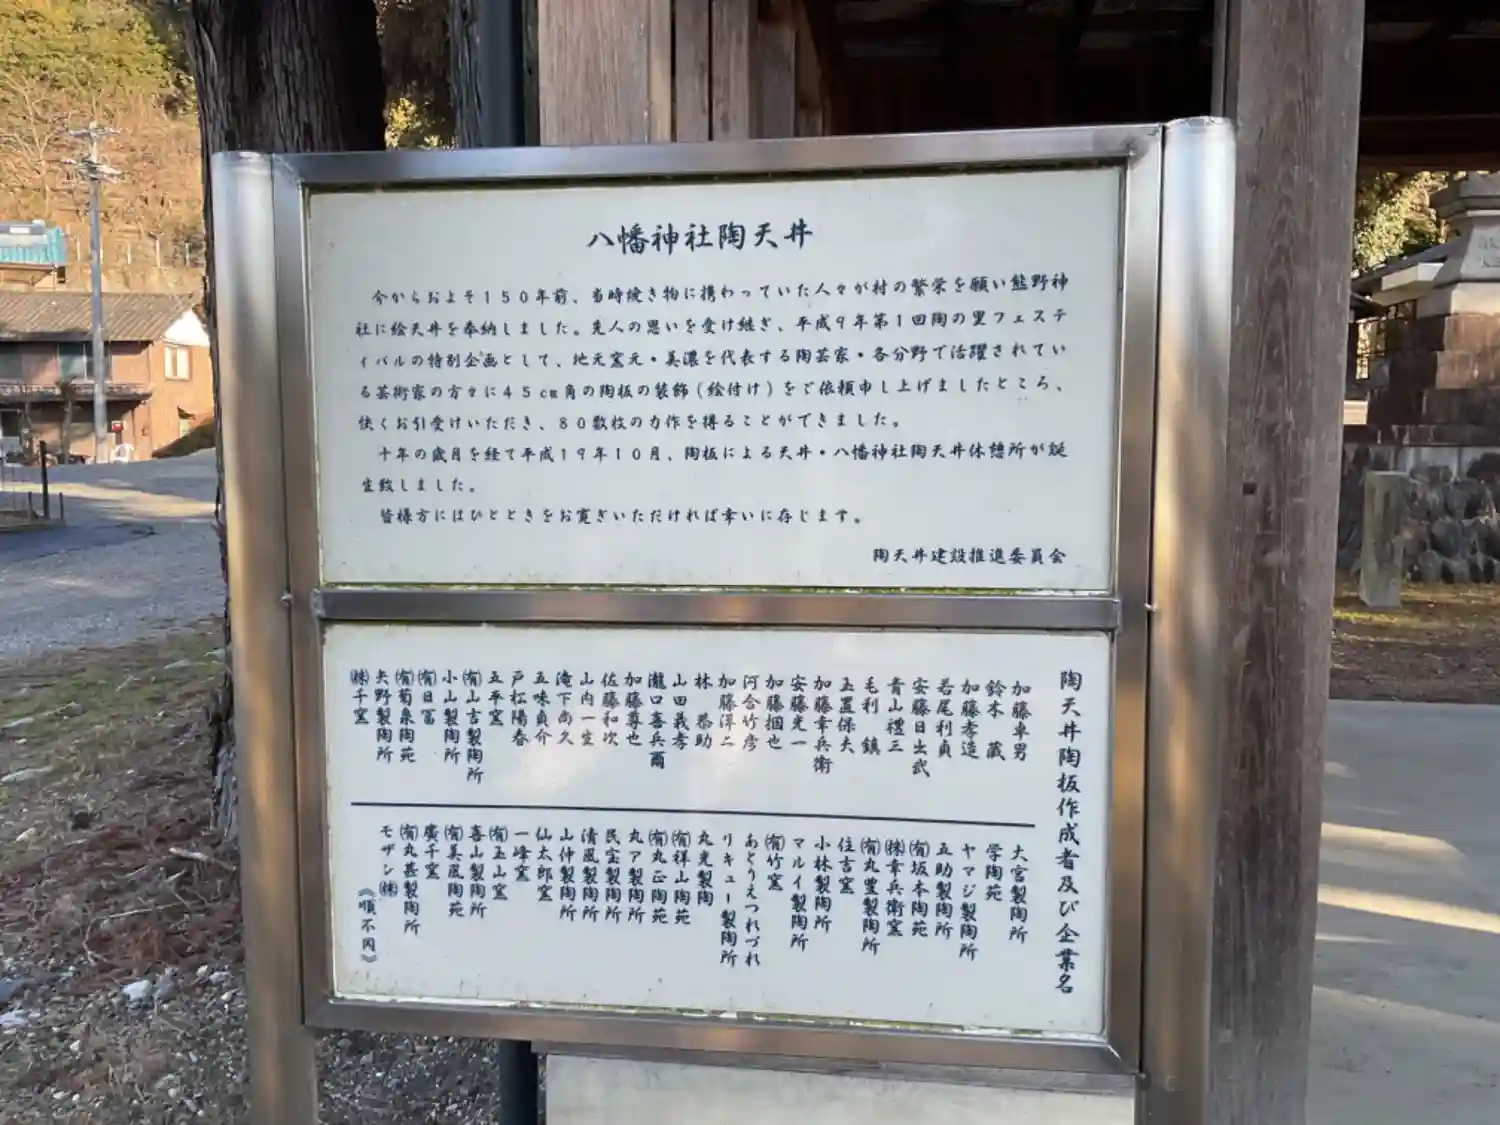 八幡神社陶天井
今からおよそ150年前、当時焼き物に携わっていた人々が村の繁栄を願い熊野神
社に絵天井を奉納しました。先人の思いを受け継ぎ、平成9年第1回陶の里フェステ
ィバルの特別企画として、地元窯元・美濃を代表する陶芸家・各分野で活躍されてい
る芸術家の方々に45cm角の陶板の装飾(絵付け)をご依頼申し上げましたところ、
快くお引受けいただき、80数枚の力作を得ることができました。
十年の歳月を経て平成19年10月、陶板による天井・八幡神社陶天井休憩所が誕
生致しました。
皆様方にはひとときをお寛ぎいただければ幸いに存じます。
陶天井建設推進委員会
陶天井陶板作成者及び企業名
加藤卓男
鈴木 蔵
加藤孝造
若尾利貞
安藤日出武
青山禮三
毛利 鎮
玉置保夫
加藤幸兵衛
安藤光一
加藤摑也
河合竹彦
加藤洋二
林 恭助
山田義孝
瀧口喜兵爾
加藤尊也
佐藤和次
山内一生
滝下尚久
五味貞介
戸松陽春
五平窯
(有)山吉製陶所
小山製陶所
(有)日冨
(有)菊泉陶苑
矢野製陶所
(株)千窯
大宮製陶所
学陶苑
ヤマジ製陶所
五助製陶所
(有)坂本陶苑
(株)幸兵衛窯
(有)丸豊製陶所
住吉窯
小林製陶所
マルイ製陶所
(有)竹窯
あとりえつれづれ
リキュー製陶所
丸光製陶
(有)祥山陶苑
(有)丸正陶苑
丸ア製陶所
民宝製陶所
清風製陶所
山仲製陶所
仙太郎窯
一峰窯
(有)玉山窯
喜山製陶所
(有)美風陶苑
廣千窯
(有)丸甚製陶所
モザン(株)
《順不同》